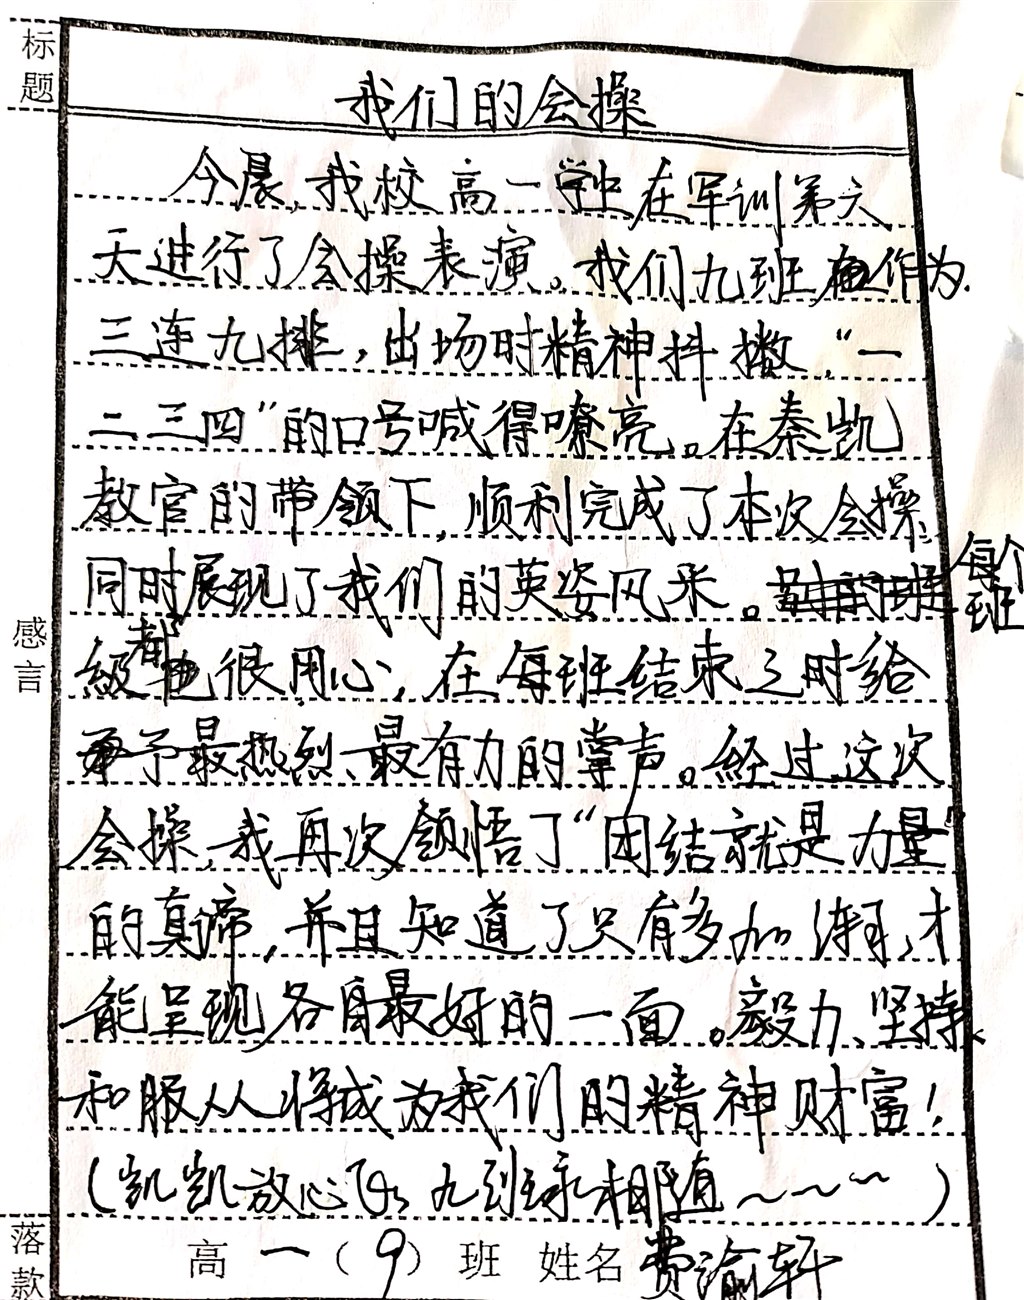 标题
我们的会操
今晨,我校高一学生在军训第六
天进行了会操表演。我们九班作为
三连九排,出场时精神抖擞,“一
二三四”的口号喊得嘹亮。在秦凯
教官的带领下,顺利完成了本次会操,
同时展现了我们的英姿风采。每个班
级都很用心,在每班结束之时给
予最热烈、最有力的掌声。经过这次
会操,我再次领悟了“团结就是力量”
的真谛,并且知道了只有多加练习,才
能呈现各自最好的一面。毅力、坚持、
和服从将成为我们的精神财富!
(凯凯放心飞,九班永相随~~~)
感言
落款
高一(9)班 姓名 费渝轩